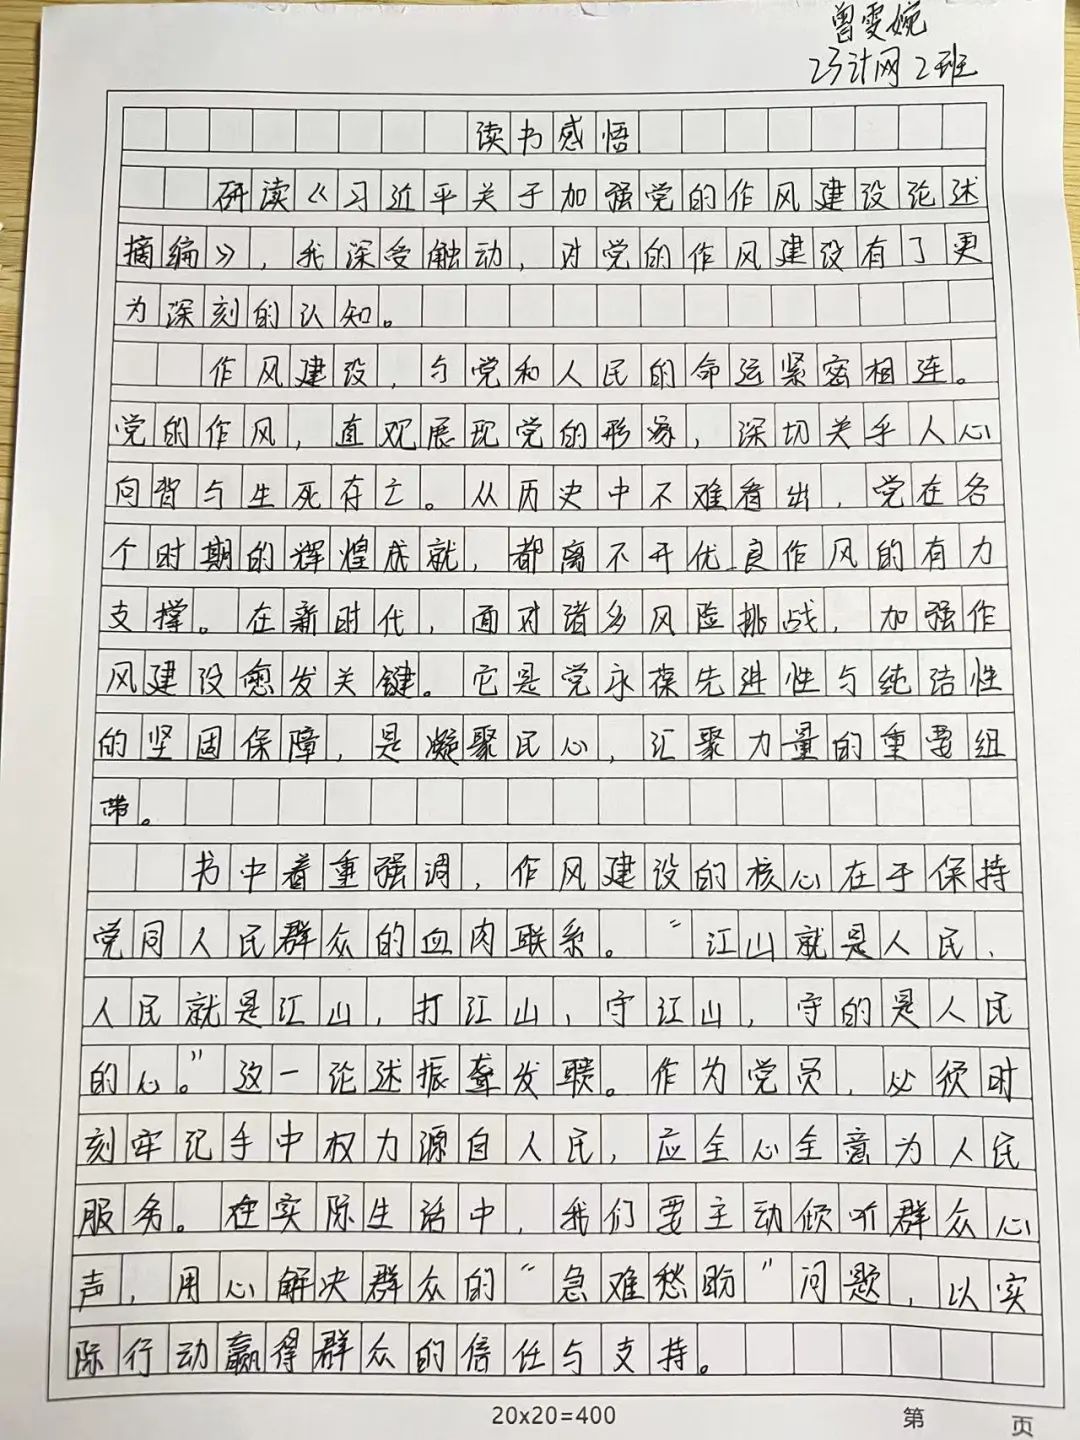 曾雯婉
23计网2班
读书感悟
研读《习近平关于加强党的作风建设论述
摘编》，我深受触动，对党的作风建设有了更
为深刻的认知。
作风建设，与党和人民的命运紧密相连。
党的作风，直观展现党的形象，深切关乎人心
向背与生死存亡。从历史中不难看出，党在各
个时期的辉煌成就，都离不开优良作风的有力
支撑。在新时代，面对诸多风险挑战，加强作
风建设愈发关键。它是党永葆先进性与纯洁性
的坚固保障，是凝聚民心，汇聚力量的重要纽
带。
书中着重强调，作风建设的核心在于保持
党同人民群众的血肉联系。“江山就是人民、
人民就是江山，打江山、守江山，守的是人民
的心。”这一论述振聋发聩。作为党员，必须时
刻牢记手中权力源自人民，应全心全意为人民
服务。在实际生活中，我们要主动倾听群众心
声，用心解决群众的“急难愁盼”问题，以实
际行动赢得群众的信任与支持。
20x20=400
第 页